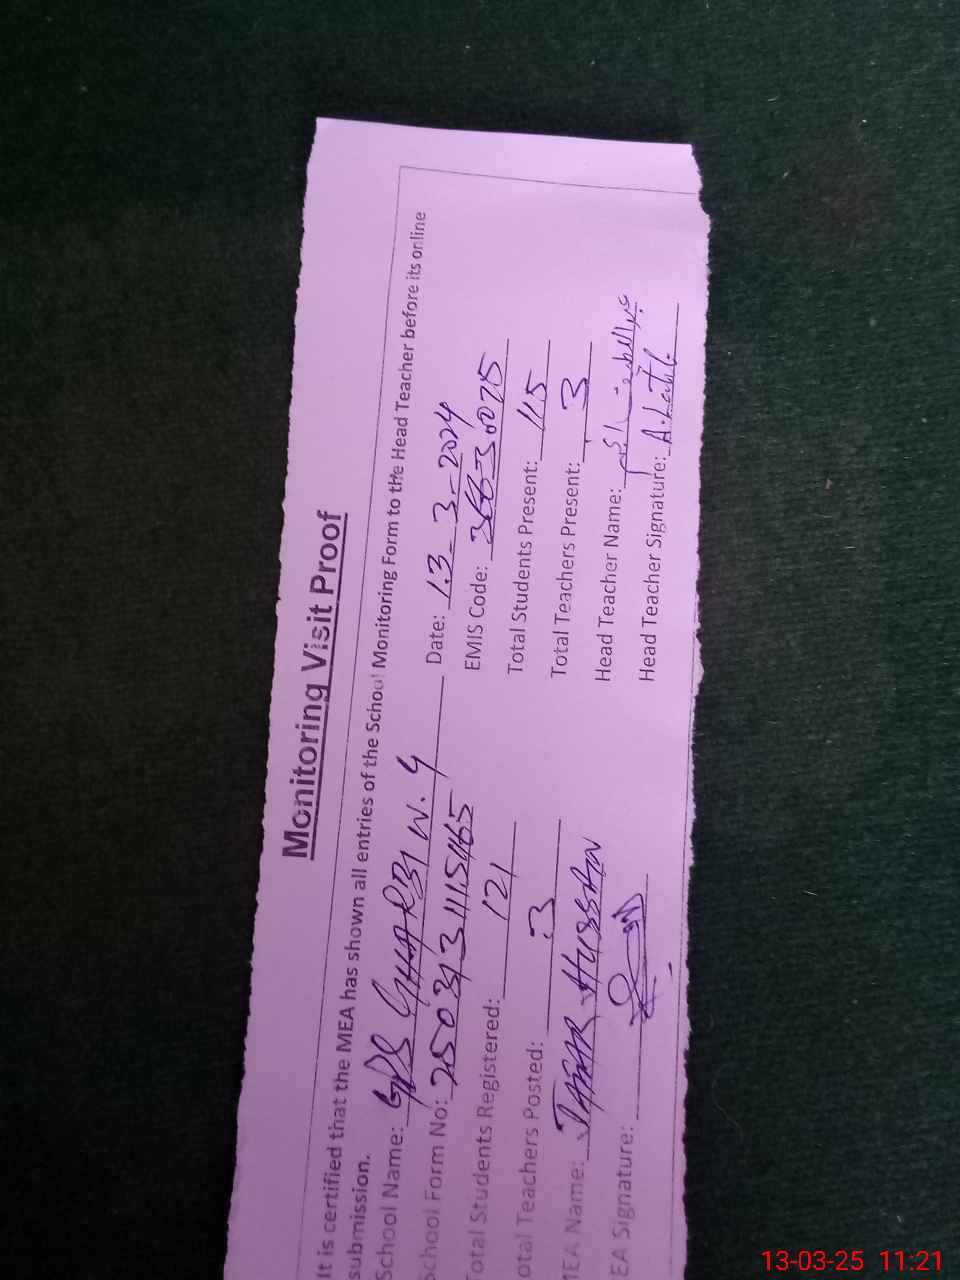 Monitoring Visit Proof
It is certified that the MEA has shown all entries of the School Monitoring Form to the Head Teacher before its online
submission.
School Name: GPS GHARBI W. 4 Date: 13-3-2024
School Form No: 250313111511165 EMIS Code: 36630075
Total Students Registered: 121 Total Students Present: 115
otal Teachers Posted: 3 Total Teachers Present: 3
MEA Name: JAFAR HUSSAIN Head Teacher Name:
EA Signature: Head Teacher Signature: A.Latif
13-03-25 11:21